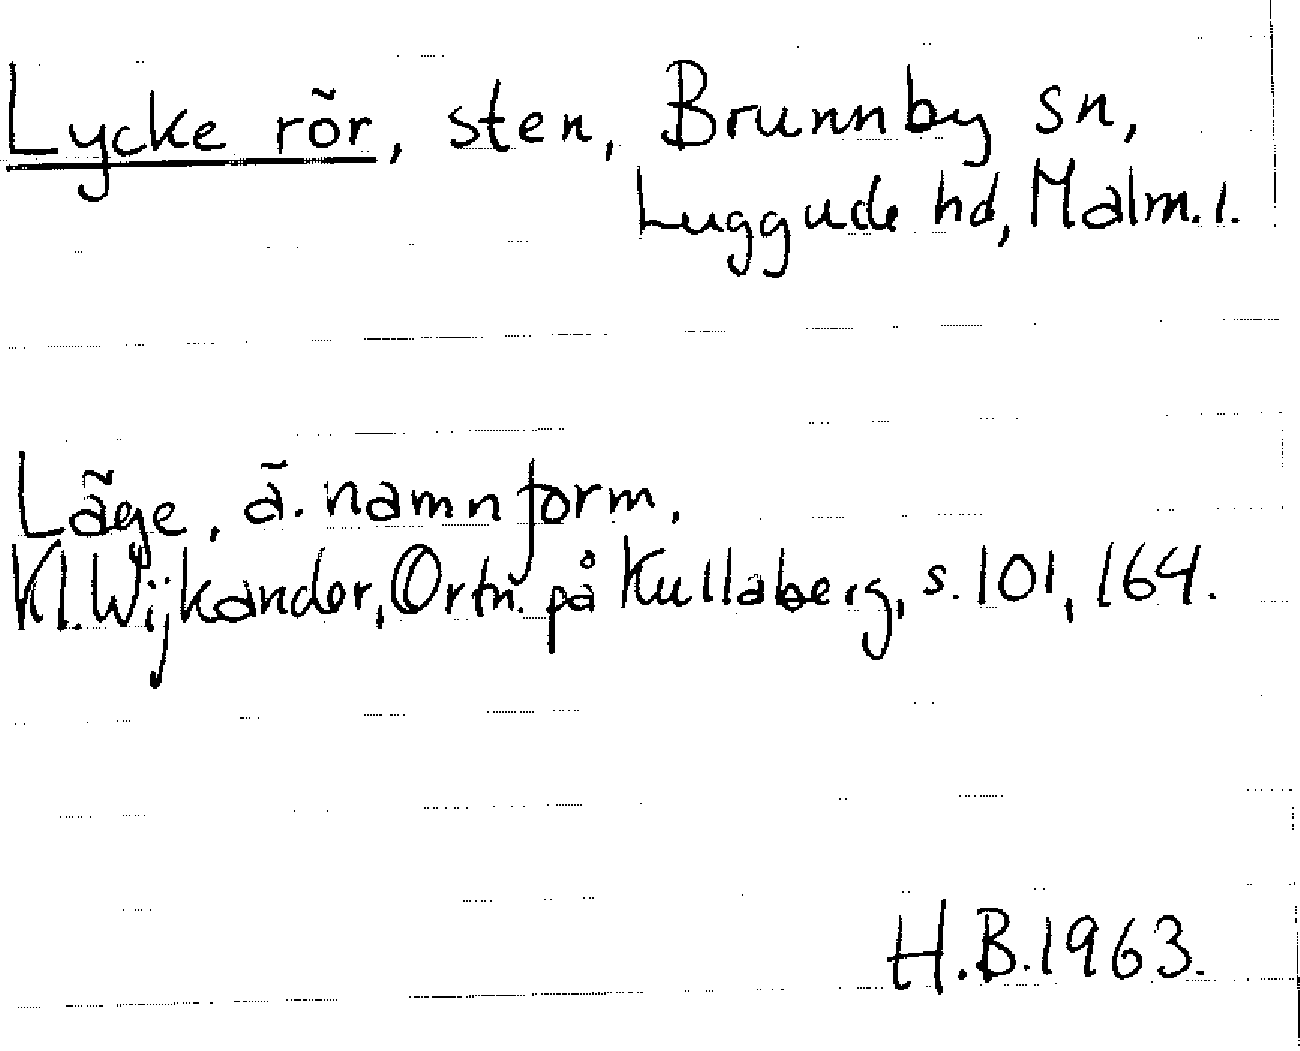 Lycke rör, sten, Brunnby sn,
Luggude hd, Malm. l.
Läge, ä. namnform,
Kl. Wijkander, Ortn. på Kullaberg, s. 101, 164.
H.B. 1963.